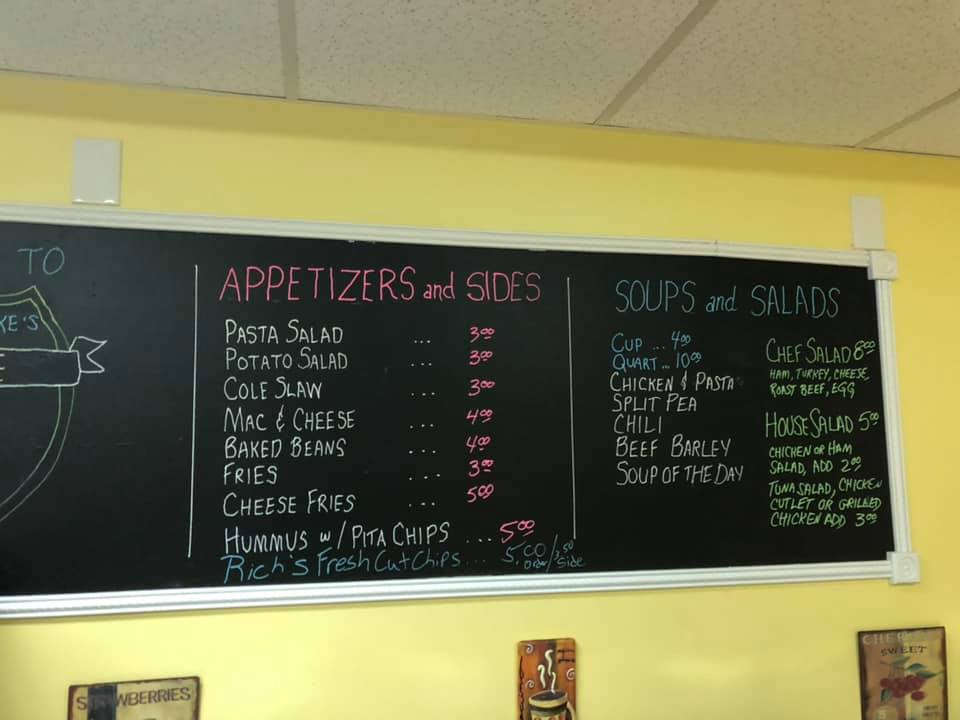 TO
KE'S
E
APPETIZERS and SIDES
PASTA SALAD ... 3.00
POTATO SALAD ... 3.00
COLE SLAW ... 3.00
MAC & CHEESE ... 4.00
BAKED BEANS ... 4.00
FRIES ... 3.00
CHEESE FRIES ... 5.00
HUMMUS w/ PITA CHIPS ... 5.00
Rich's Fresh Cut Chips ... 5.00 order/3.50 Side
SOUPS and SALADS
CUP ... 4.00
QUART ... 10.00
CHICKEN & PASTA
SPLIT PEA
CHILI
BEEF BARLEY
SOUP OF THE DAY
CHEF SALAD 8.00
HAM, TURKEY, CHEESE,
ROAST BEEF, EGG
HOUSE SALAD 5.00
CHICKEN OR HAM
SALAD, ADD 2.00
TUNA SALAD, CHICKEN
CUTLET OR GRILLED
CHICKEN ADD 3.00
STRAWBERRIES
CHERRIES
SWEET